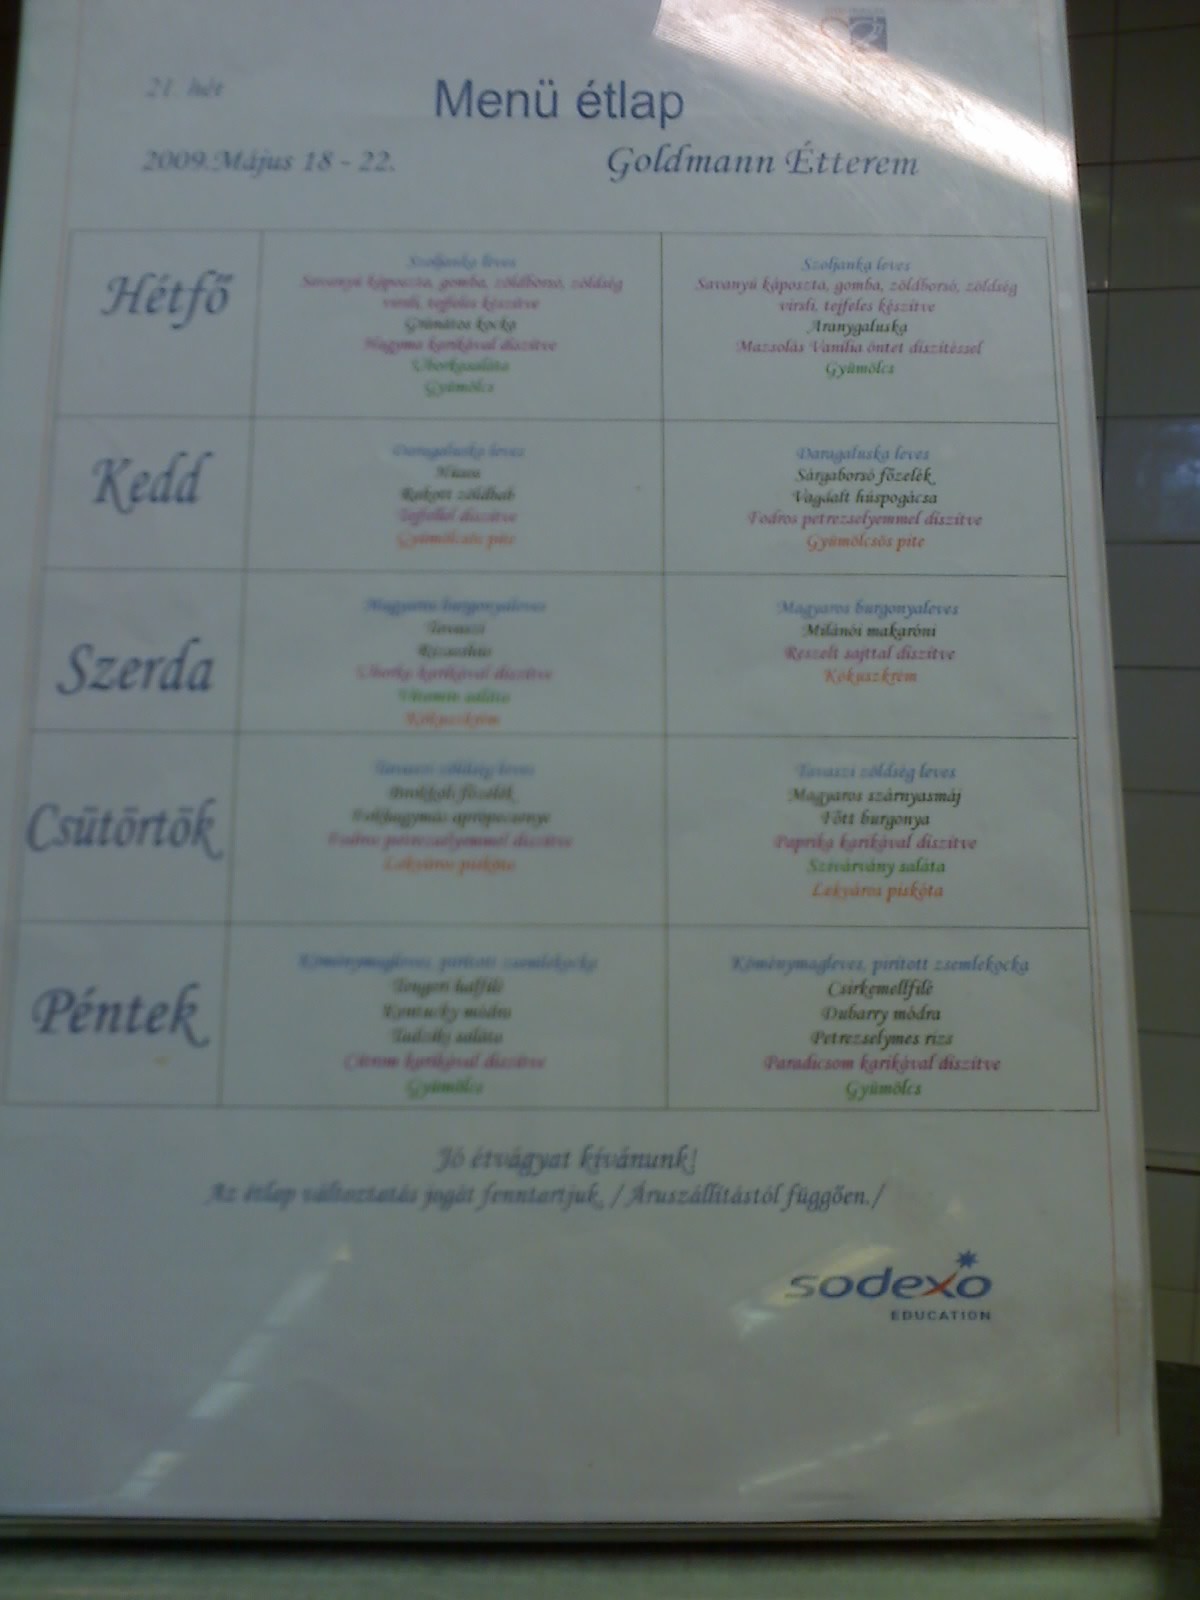 21. hét
Menü étlap
2009.Május 18 - 22.
Goldmann Étterem
Hétfő
Szoljanka leves
Savanyú káposzta, gomba, zöldborsó, zöldség
virsli, tejfeles készítve
Gránátos kocka
Hagyma karikával díszítve
Uborkasaláta
Gyümölcs
Szoljanka leves
Savanyú káposzta, gomba, zöldborsó, zöldség
virsli, tejfeles készítve
Aranygaluska
Mazsolás Vanília öntet díszítéssel
Gyümölcs
Kedd
Daragaluska leves
Rakott zöldbab
Tejfellel díszítve
Gyümölcsös pite
Daragaluska leves
Sárgaborsó főzelék
Vagdalt húspogácsa
Fodros petrezselyemmel díszítve
Gyümölcsös pite
Szerda
Magyaros burgonyaleves
Tavaszi
Rizseshús
Uborka karikával díszítve
Vitamin saláta
Kókuszkrém
Magyaros burgonyaleves
Milánói makaróni
Reszelt sajttal díszítve
Kókuszkrém
Csütörtök
Tavaszi zöldség leves
Brokkoli főzelék
Fokhagymás aprópecsenye
Fodros petrezselyemmel díszítve
Lekváros piskóta
Tavaszi zöldség leves
Magyaros szárnyasmáj
Főtt burgonya
Paprika karikával díszítve
Szivárvány saláta
Lekváros piskóta
Péntek
Köménymagleves, pirított zsemlekocka
Tengeri halfilé
Kentucky módra
Tadziki saláta
Citrom karikával díszítve
Gyümölcs
Köménymagleves, pirított zsemlekocka
Csirkemellfilé
Dubarry módra
Petrezselymes rizs
Paradicsom karikával díszítve
Gyümölcs
Jó étvágyat kívánunk!
Az étlap változtatás jogát fenntartjuk. / Áruszállítástól függően./
sodexo
EDUCATION